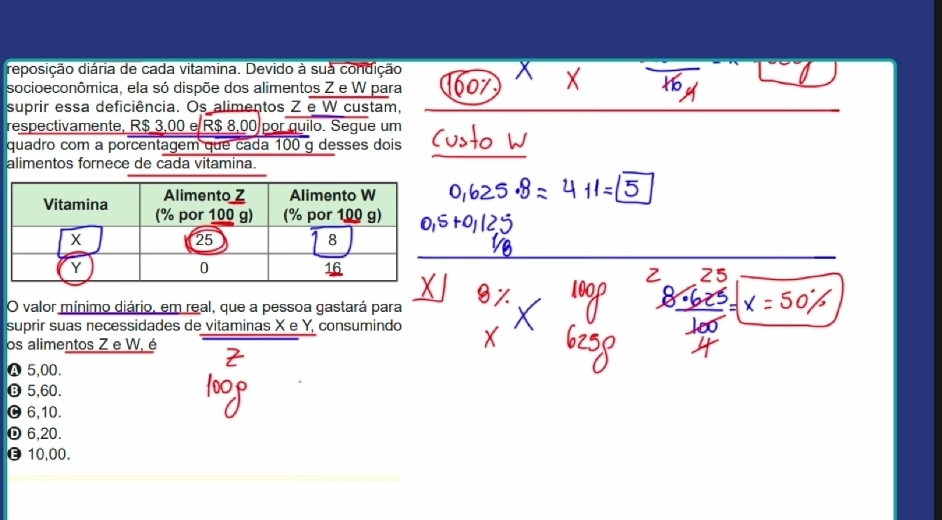 reposição diária de cada vitamina. Devido à sua condição
socioeconômica, ela só dispõe dos alimentos Z e W para
suprir essa deficiência. Os alimentos Z e W custam,
respectivamente, R$ 3,00 e R$ 8,00 por quilo. Segue um
quadro com a porcentagem que cada 100 g desses dois
alimentos fornece de cada vitamina.
Vitamina Alimento Z (% por 100 g) Alimento W (% por 100 g)
X 25 8
Y 0 16
O valor mínimo diário, em real, que a pessoa gastará para
suprir suas necessidades de vitaminas X e Y, consumindo
os alimentos Z e W, é
A 5,00.
B 5,60.
C 6,10.
D 6,20.
E 10,00.
Z
100g
100% X X
16 4
Custo W
0,625 . 8 = 4 + 1 = 5
0,5 + 0,125
1/8
X] 8% X 100g
x 625g
2 25
8 . 625 = x = 50%
100
4